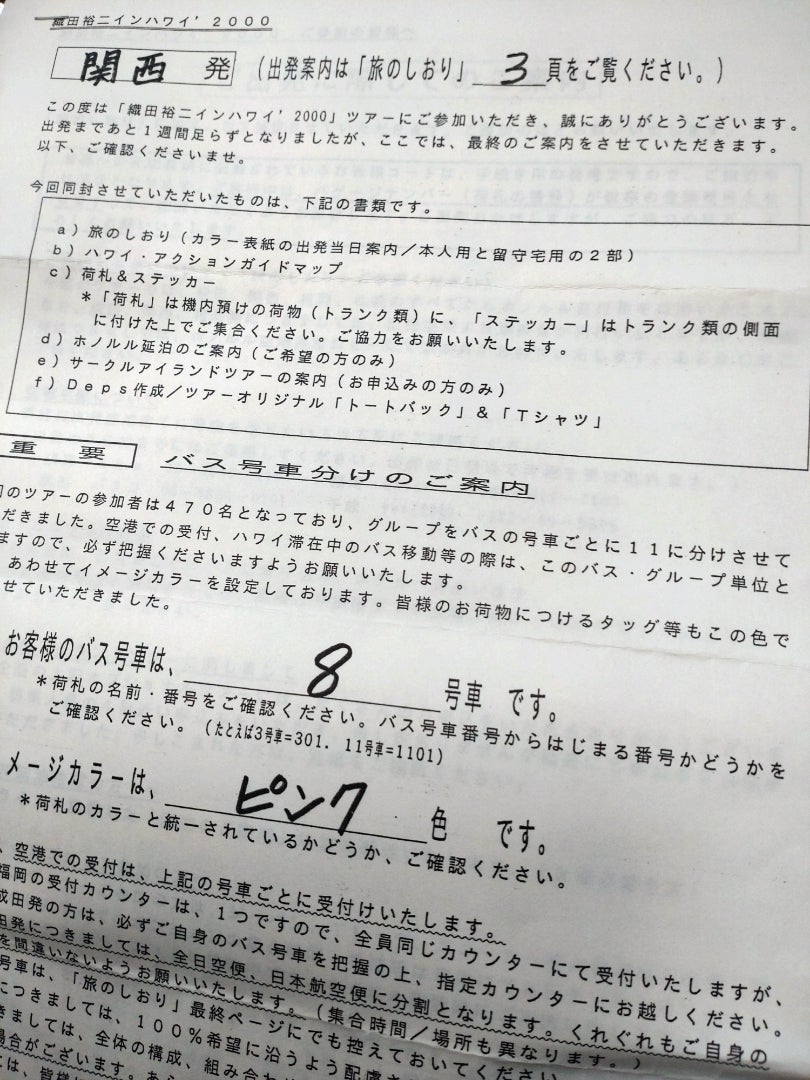 織田裕二インハワイ’2000
関西 発 (出発案内は「旅のしおり」 3 頁をご覧ください。)
この度は「織田裕二インハワイ’2000」ツアーにご参加いただき、誠にありがとうございます。
出発まであと1週間足らずとなりましたが、ここでは、最終のご案内をさせていただきます。
以下、ご確認くださいませ。
今回同封させていただいたものは、下記の書類です。
a)旅のしおり(カラー表紙の出発当日案内/本人用と留守宅用の2部)
b)ハワイ・アクションガイドマップ
c)荷札&ステッカー
*「荷札」は機内預けの荷物(トランク類)に、「ステッカー」はトランク類の側面
に付けた上でご集合ください。ご協力をお願いいたします。
d)ホノルル延泊のご案内(ご希望の方のみ)
e)サークルアイランドツアーの案内(お申込みの方のみ)
f)Deps作成/ツアーオリジナル「トートバック」&「Tシャツ」
重要 バス号車分けのご案内
のツアーの参加者は470名となっており、グループをバスの号車ごとに11に分けさせて
だきました。空港での受付、ハワイ滞在中のバス移動等の際は、このバス・グループ単位と
ますので、必ず把握くださいますようお願いいたします。
あわせてイメージカラーを設定しております。皆様のお荷物につけるタッグ等もこの色で
せていただきました。
お客様のバス号車は、 8 号車 です。
*荷札の名前・番号をご確認ください。バス号車番号からはじまる番号かどうかを
ご確認ください。(たとえば3号車=301. 11号車=1101)
メージカラーは、 ピンク 色 です。
*荷札のカラーと統一されているかどうか、ご確認ください。
、空港での受付は、上記の号車ごとに受付けいたします。
福岡の受付カウンターは、1つですので、全員同じカウンターにて受付いたしますが、
成田発の方は、必ずご自身のバス号車を把握の上、指定カウンターにお越しください。
田発につきましては、全日空便、日本航空便に分割となります。くれぐれもご自身の
を間違いないようお願いいたします。(集合時間/場所も異なります。)
号車は、「旅のしおり」最終ページにでも控えておいてください。
につきましては、100%希望に沿うよう配慮さ
きましては、全体の構成、組み合わ
場合がございます。あ
には、皆様に